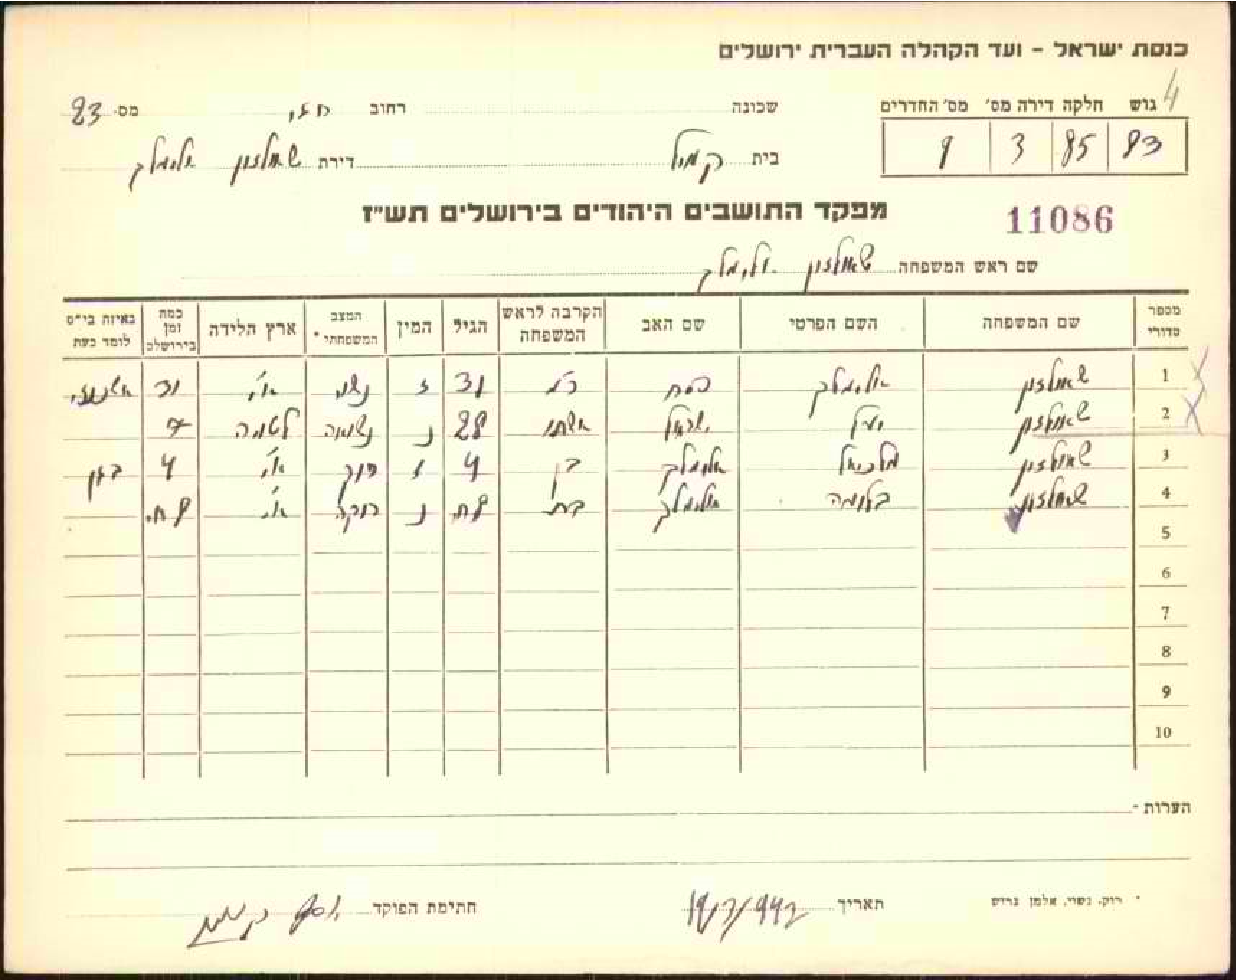 כנסת ישראל - ועד הקהלה העברית ירושלים
4
גוש חלקה דירה מס' מס' החדרים
83 85 3
שכונה רחוב מס. 83
בית דירת שאולזון אלימלך
מפקד התושבים היהודים בירושלים תש"ז
11086
שם ראש המשפחה שאולזון אלימלך
מספר סדורי שם המשפחה השם הפרטי שם האב הקרבה לראש המשפחה הגיל המין המצב המשפחתי * ארץ הלידה כמה זמן בירושלים באיזה בי"ס לומד כעת
1 שאולזון אלימלך פסח 31 ז נשוי א"י 31
2 שאולזון יעל ישראל אשתו 28 נ נשואה לטויה 7
3 שאולזון מלכיאל אלימלך בן 4 ז רוק א"י 4 בגן
4 שאולזון אלימלך בת 8 ח. נ רוקה א"י 8 ח.
5
6
7
8
9
10
הערות -
* רוק, נשוי, אלמן גרוש תאריך חתימת הפוקד